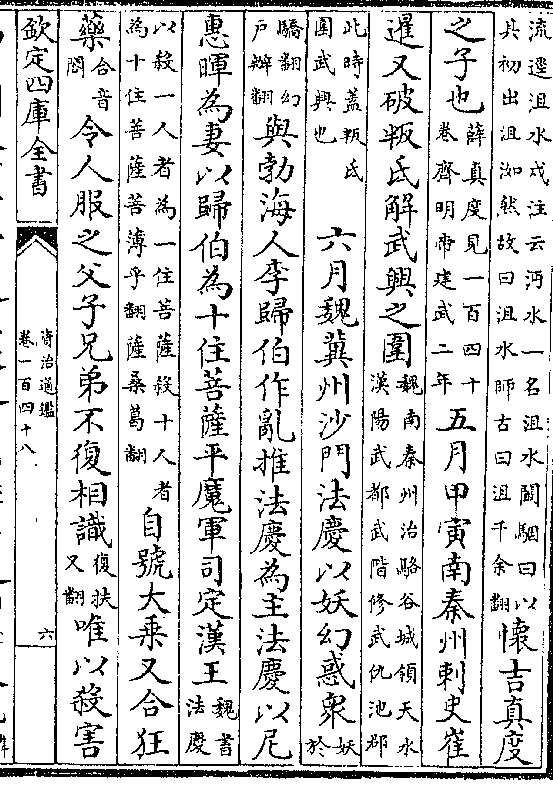 流遷沮水戍注云沔水一名沮水闞駰曰以
其初出沮洳然故曰沮水師古曰沮千余翻
懷吉真度
之子也
薛真度見一百四十
卷齊明帝建武二年
五月甲寅南秦州刺史崔
暹又破叛氐解武興之圍
魏南秦州治駱谷城領天水
漢陽武都武階修武仇池郡
此時蓋叛氐
圍武興也
六月魏冀州沙門法慶以妖幻惑衆
妖於
驕翻幻
戶辦翻
與勃海人李歸伯作亂推法慶為主法慶以尼
惠暉為妻以歸伯為十住菩薩平魔軍司定漢王
魏書
法慶
以殺一人者為一住菩薩殺十人者
為十住菩薩菩薄乎翻薩桑葛翻
自號大乘又合狂
藥
合音
閤
令人服之父子兄弟不復相識
復扶
又翻
唯以殺害
欽定四庫全書
資治通鑑
卷一百四十八
六